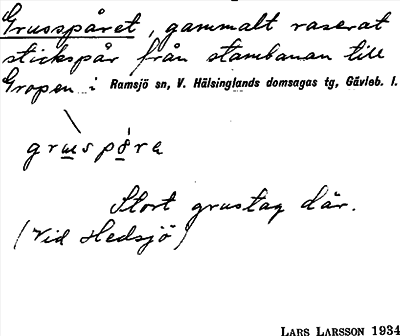 Grusspåret, gammalt raserat
stickspår från stambanan till
Gropen i Ramsjö sn, V. Hälsinglands domsagas tg, Gävleb. l.
Stort grustag där.
(Vid Hedsjö)
LARS LARSSON 1934